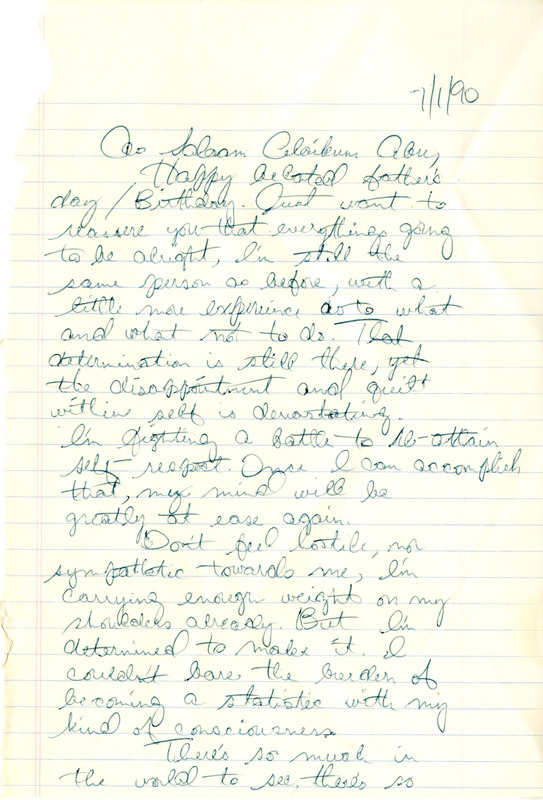 7/1/90
As Salaam Alaikum Abu,
Happy belated father's
day / Birthday. Just want to
reassure you that everythings going
to be alright, I'm still the
same person as before, with a
little more experience as to what
and what not to do. That
determination is still there, yet
the disappointment and guilt
within self is devastating.
I'm fighting a battle to re-attain
self-respect. Once I can accomplish
that, my mind will be
greatly at ease again.
Don't feel hostile, nor
sympathetic towards me, I'm
carrying enough weight on my
shoulders already. But I'm
determined to make it. I
couldn't bare the burden of
becoming a statistic with my
kind of consciousness
There's so much in
the world to see, there's so